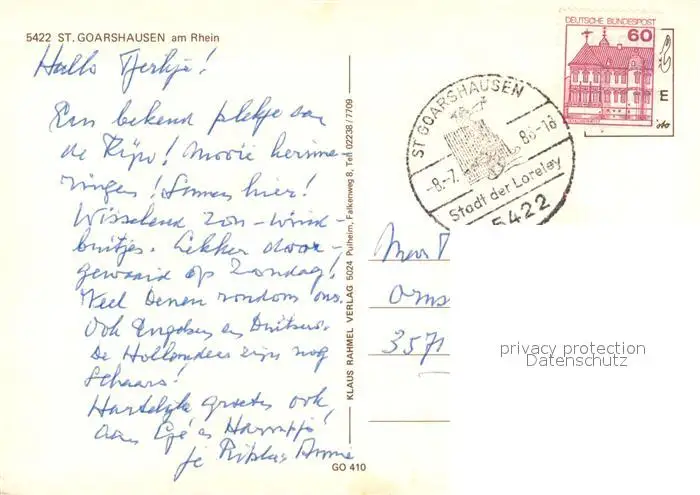 5422 ST. GOARSHAUSEN am Rhein
Hallo
Een bekend plekje aan
de Rijn! Mooie herinne-
ringen! hier!
Wisselend zon-wind-
buitjes. Lekker door-
gewaaid op Zondag!
Veel Denen rondom ons.
Ook Engelsen en Duitsers.
De Hollanders zijn nog
schaars!
Hartelijke groeten ook
aan en
je Annie
KLAUS RAHMEL VERLAG 5024 Pulheim, Falkenweg 8, Tel. 02238/7709
GO 410
DEUTSCHE BUNDESPOST
60
ST GOARSHAUSEN
-8.-7. 8
-18
Stadt der Loreley
5422
E
3571
privacy protection
Datenschutz